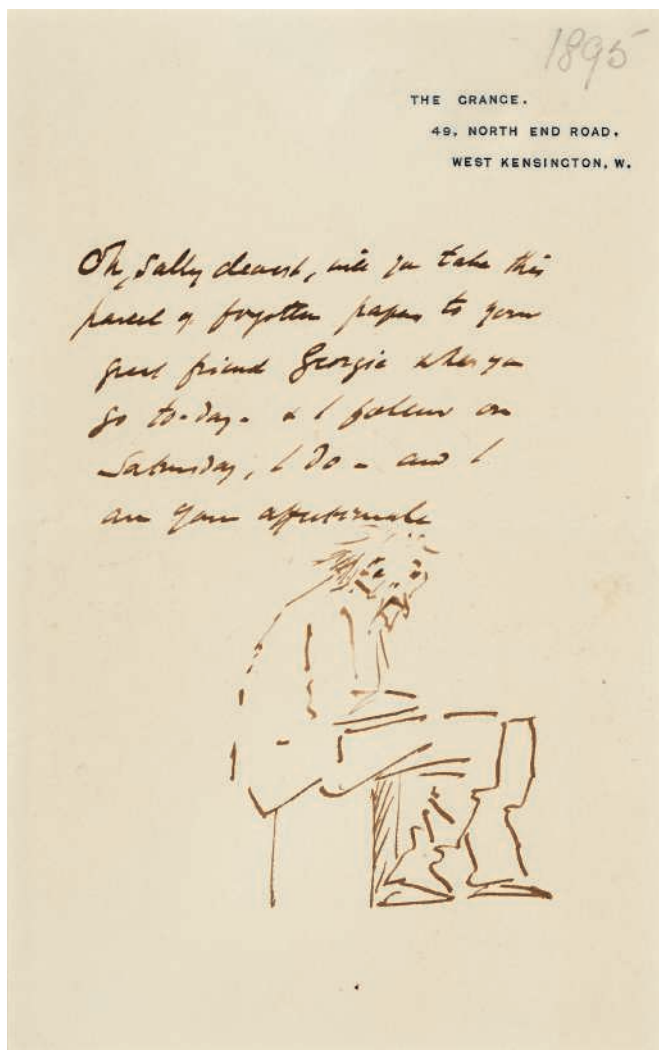 1895
THE GRANGE.
49, NORTH END ROAD,
WEST KENSINGTON, W.
Oh, Sally dearest, will you take this
parcel of forgotten papers to your
great friend Georgie when you
go to-day - & I follow on
Saturday, I do - and I
am your affectionate